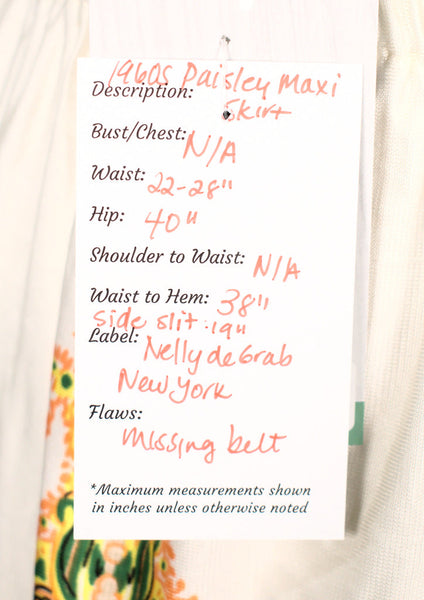 1960s Paisley Maxi
Description:
Skirt
Bust/Chest: N/A
Waist: 22-28"
Hip: 40"
Shoulder to Waist: N/A
Waist to Hem: 38"
Side slit: 19"
Label: Nelly de Grab
New York
Flaws:
missing belt
*Maximum measurements shown
in inches unless otherwise noted